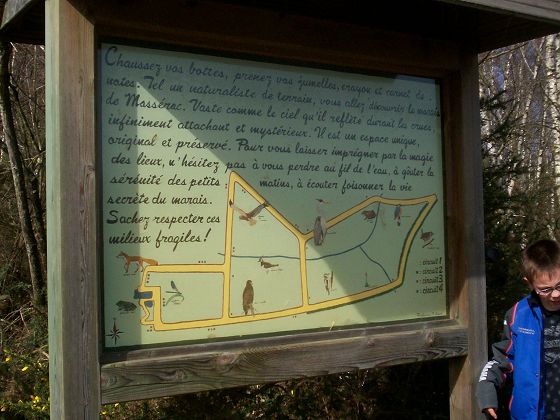 Chaussez vos bottes, prenez vos jumelles, crayon et carnet de
notes. Tel un naturaliste de terrain, vous allez découvrir le marais
de Massérac. Vaste comme le ciel qu'il reflète durant les crues,
infiniment attachant et mystérieux. Il est un espace unique,
original et préservé. Pour vous laisser imprégner par la magie
des lieux, n'hésitez pas à vous perdre au fil de l'eau, à goûter la
sérénité des petits matins, à écouter foisonner la vie
secrète du marais.
Sachez respecter ces
milieux fragiles!
: circuit 1
: circuit 2
: circuit 3
: circuit 4